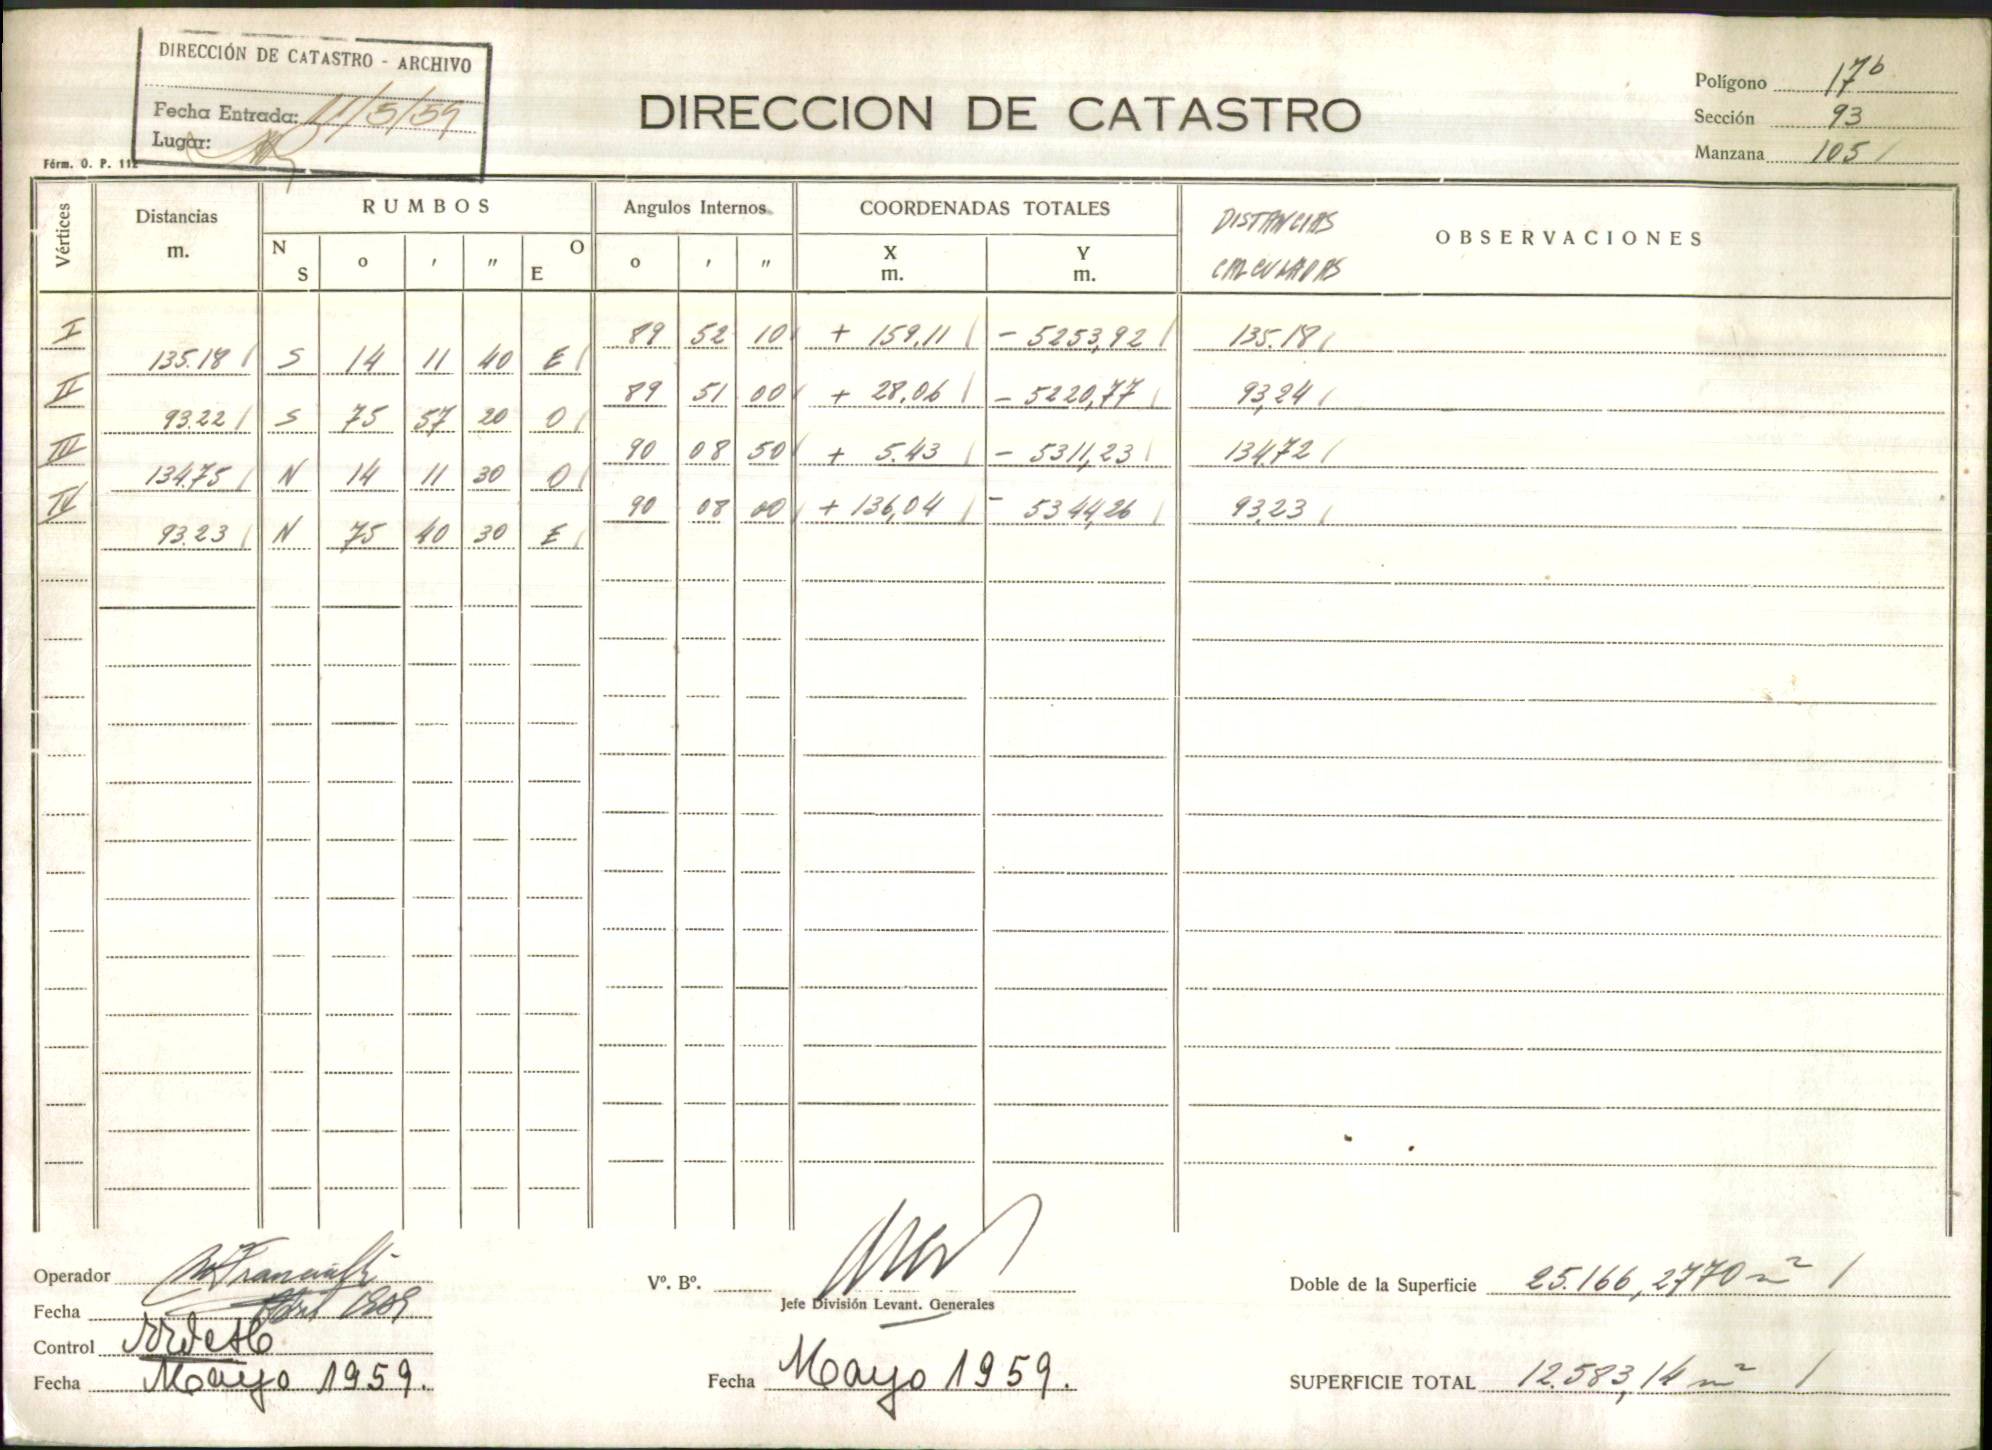 DIRECCIÓN DE CATASTRO - ARCHIVO
Fecha Entrada: 21/5/59
Lugar:
Fórm. O. P. 112
DIRECCION DE CATASTRO
Polígono 17b
Sección 93
Manzana 105
Vértices Distancias m. RUMBOS N S o ' " O E Angulos Internos o ' " COORDENADAS TOTALES X m. Y m. DISTANCIAS CALCULADAS OBSERVACIONES
I 89 52 10 + 159,11 - 5253,92 135.18
135.18 S 14 11 40 E
II 89 51 00 + 28,06 - 5220,77 93,24
93.22 S 75 57 20 O
III 90 08 50 + 5.43 - 5311,23 134.72
134.75 N 14 11 30 O
IV 90 08 00 + 136,04 - 5344,26 93.23
93.23 N 75 40 30 E
Operador
Fecha Abril 1959
Control
Fecha Mayo 1959.
Vº. Bº.
Jefe División Levant. Generales
Fecha Mayo 1959.
Doble de la Superficie 25.166,2770 m²
SUPERFICIE TOTAL 12.583,14 m²